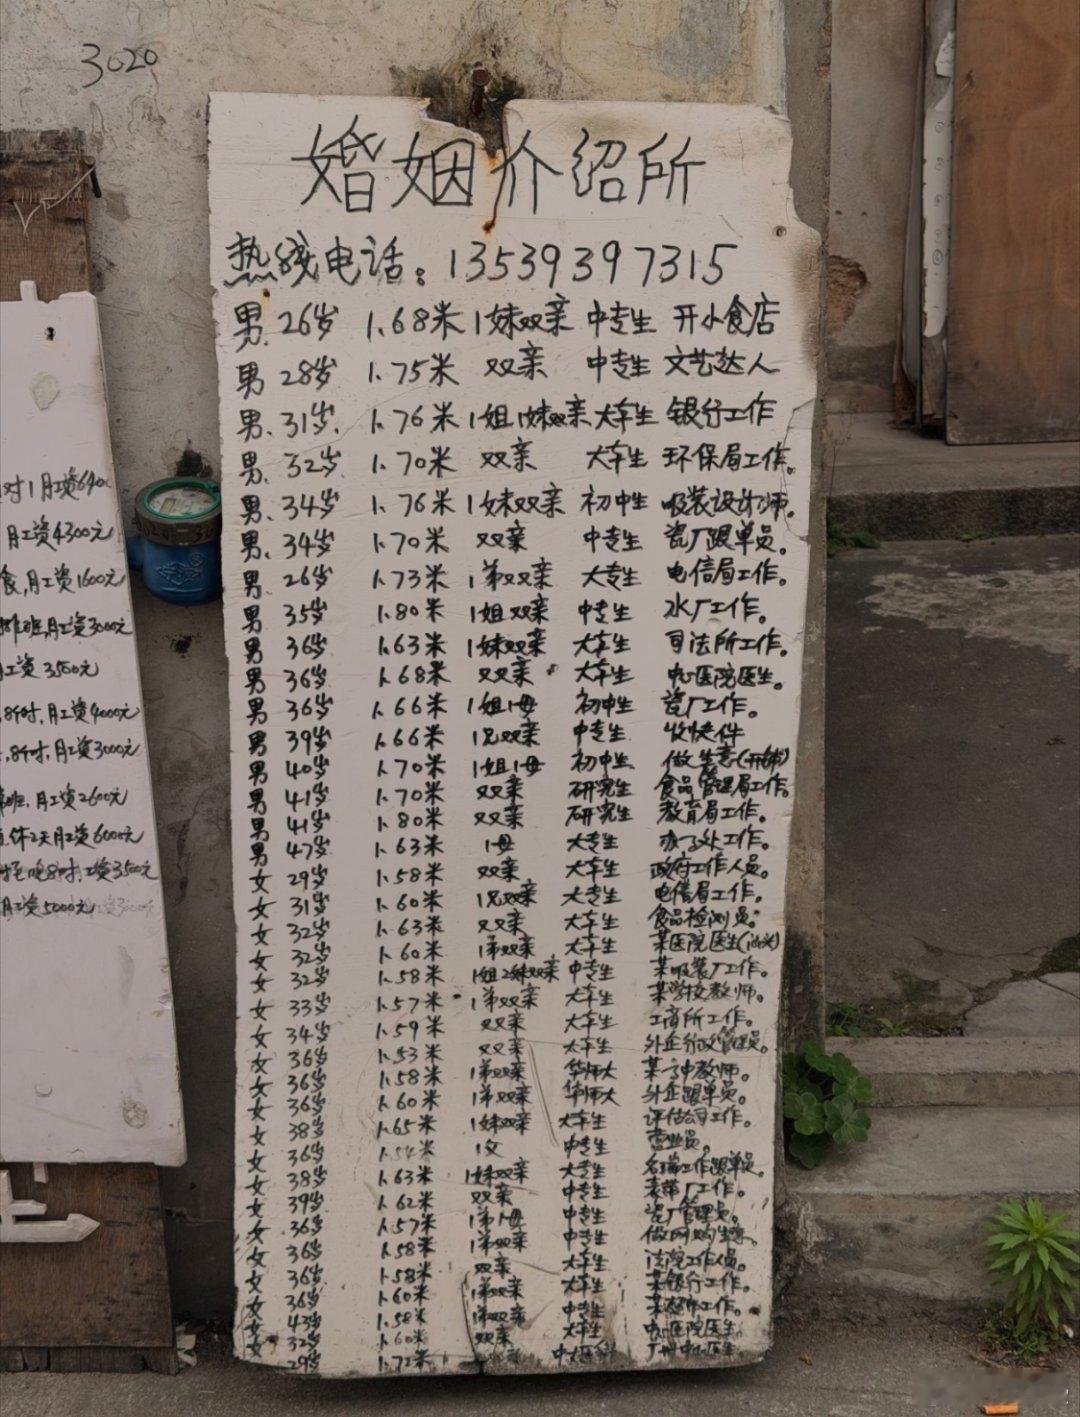 3020
婚姻介绍所
热线电话:13539397315
男 26岁 1.68米 1妹双亲 中专生 开小食店
男 28岁 1.75米 双亲 中专生 文艺达人
男 31岁 1.76米 1姐1妹双亲 大专生 银行工作
男 32岁 1.70米 双亲 大专生 环保局工作。
男 34岁 1.76米 1妹双亲 初中生 服装设计师。
男 34岁 1.70米 双亲 中专生 瓷厂跟单员。
男 26岁 1.73米 1弟双亲 大专生 电信局工作。
男 35岁 1.80米 1姐双亲 中专生 水厂工作。
男 36岁 1.63米 1妹双亲 大专生 司法所工作。
男 36岁 1.68米 双亲 大专生 中心医院医生。
男 36岁 1.66米 1姐1母 初中生 瓷厂工作。
男 39岁 1.66米 1兄双亲 中专生 收快件
男 40岁 1.70米 1姐1母 初中生 做生意
男 41岁 1.70米 双亲 研究生 食品管理局工作。
男 41岁 1.80米 双亲 研究生 教育局工作。
男 47岁 1.63米 1母 大专生 办事处工作。
女 29岁 1.58米 双亲 大专生 政府工作人员。
女 31岁 1.60米 1兄双亲 大专生 电信局工作。
女 32岁 1.63米 双亲 大专生 食品检测员。
女 32岁 1.60米 1弟双亲 大专生 某医院医生
女 32岁 1.58米 1姐2妹双亲 中专生 某服装厂工作。
女 33岁 1.57米 1弟双亲 大专生 某学校教师。
女 34岁 1.59米 双亲 大专生 工商所工作。
女 36岁 1.53米 双亲 大专生 外企行政管理员。
女 36岁 1.58米 1弟双亲 华师大 某中教师。
女 36岁 1.60米 1弟双亲 华师大 外企跟单员。
女 38岁 1.65米 1妹双亲 大专生 评估公司工作。
女 36岁 1.54米 1父 中专生 营业员。
女 38岁 1.63米 1妹双亲 大专生 工作跟单员。
女 39岁 1.62米 双亲 中专生 厂工作。
女 36岁 1.57米 1弟1母 中专生 瓷厂管理员。
女 36岁 1.58米 1弟双亲 中专生 做网购生意。
女 36岁 1.58米 双亲 大专生 法院工作人员。
女 36岁 1.60米 1弟双亲 大专生 某银行工作。
女 43岁 1.58米 1弟双亲 中专生 工作。
女 32岁 1.60米 双亲 大专生 中心医院医生。
29岁 1.72米
时1月工资6400
月工资4300元
食,月工资1600元
班,月工资3000元
月工资3500元
8小时,月工资4000元
8小时,月工资3000元
班,月工资2600元
休2天月工资6000元
晚8时,工资3500元
月工资5000元